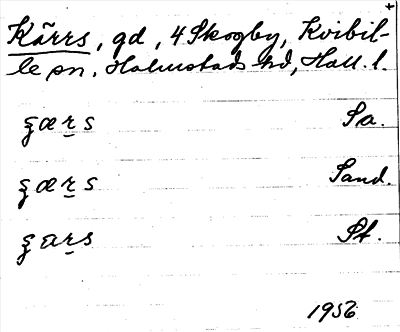 Kärrs, gd, 4 Skogby, Kvibil-
le sn, Halmstads hd, Hall. l.
ʂærs Sa.
ʂærs Sand.
ʂars St.
1956